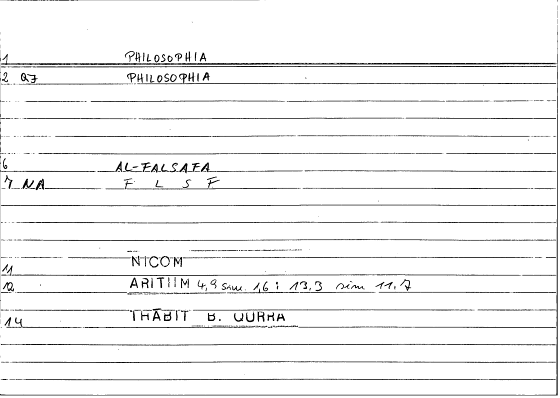 1 PHILOSOPHIA
2 QJ PHILOSOPHIA
6 AL-FALSAFA
7 NA F L S F
11 NICOM
12 ARITHM 4,9 sim. 1,6 : 13,3 sim 11,7
14 THĀBIT B. QURRA